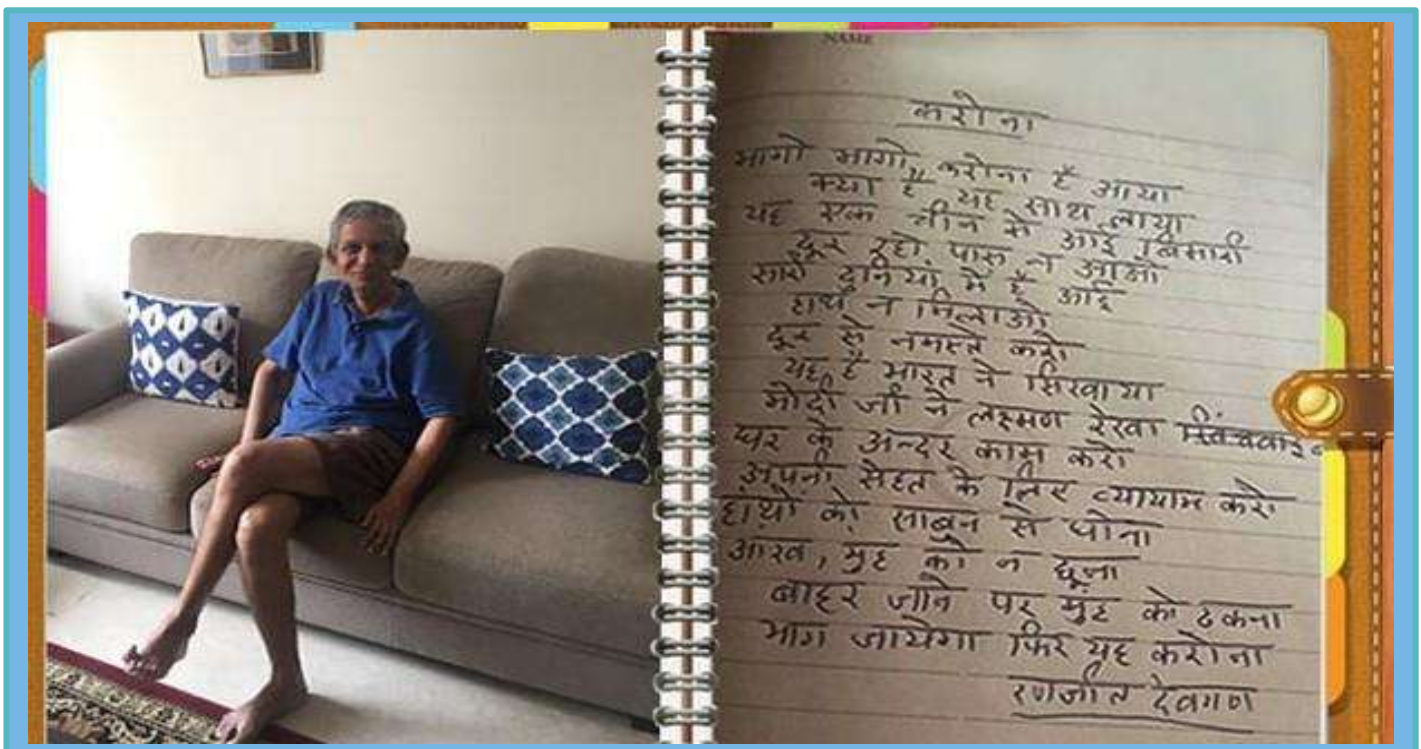 NAME
करोना
भागो भागो, करोना है आया
क्या है यह साथ लाया
यह एक चीन से आई बिमारी
दूर रहो पास न आओ
सारी दुनियां में है आई
हाथ न मिलाओ
दूर से नमस्ते करो
यह है भारत ने सिखाया
मोदी जी ने लक्ष्मण रेखा
घर के अन्दर काम करो
अपनी सेहत के लिए व्यायाम करो
हांथों को साबुन से धोना
आख, मुह को न छूना
बाहर जाने पर मुंह को ढकना
भाग जायेगा फिर यह करोना
रणजीत देवगण